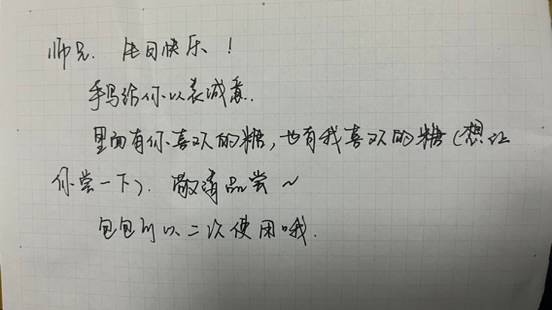 师兄. 生日快乐！
手写给你以表诚意.
里面有你喜欢的糖, 也有我喜欢的糖(想让
你尝一下). 敬请品尝~
包包可以二次使用哦.